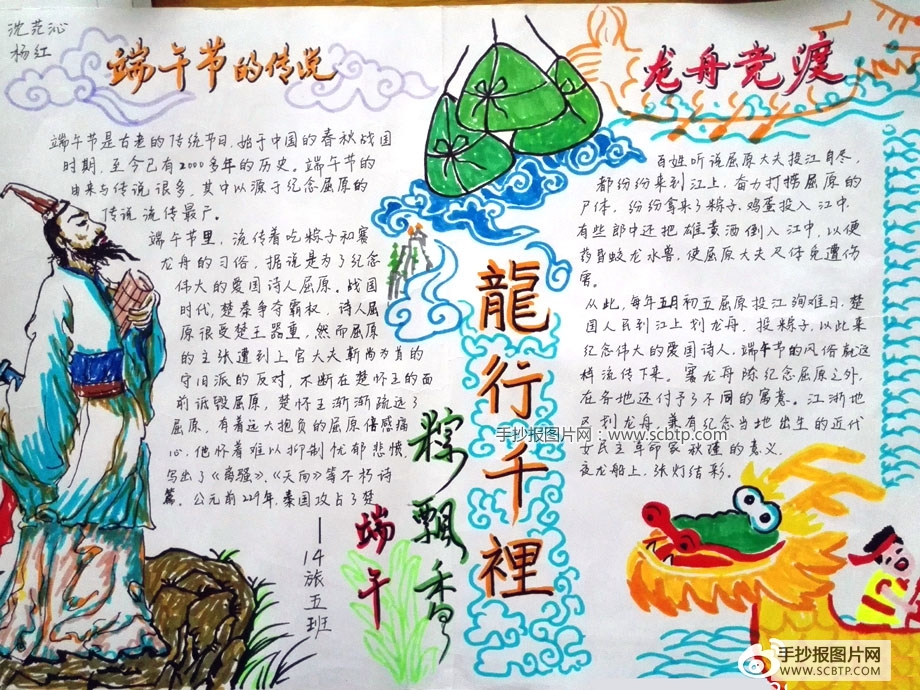 沈范沁
杨红
端午节的传说
端午节是古老的传统节日,始于中国的春秋战国
时期,至今已有2000多年的历史。端午节的
由来与传说很多,其中以源于纪念屈原的
传说流传最广。
端午节里,流传着吃粽子和赛
龙舟的习俗,据说是为了纪念
伟大的爱国诗人屈原。战国
时代,楚秦争夺霸权,诗人屈
原很受楚王器重,然而屈原
的主张遭到上官大夫靳尚为首的
守旧派的反对,不断在楚怀王的面
前诋毁屈原,楚怀王渐渐疏远了
屈原,有着远大抱负的屈原倍感痛
心,他怀着难以抑制忧郁悲愤,
写出了《离骚》、《天问》等不朽诗
篇。公元前229年,秦国攻占了楚
——14旅五班
端午
粽飘香
龍行千裡
龙舟竞渡
百姓听说屈原大夫投江自尽,
都纷纷来到江上,奋力打捞屈原的
尸体,纷纷拿来了粽子、鸡蛋投入江中,
有些郎中还把雄黄酒倒入江中,以便
药昏蛟龙水兽,使屈原大夫尸体免遭伤
害。
从此,每年五月初五屈原投江殉难日,楚
国人民到江上划龙舟,投粽子,以此来
纪念伟大的爱国诗人,端午节的风俗就这
样流传下来。赛龙舟除纪念屈原之外,
在各地还付予了不同的寓意。江浙地
区划龙舟,兼有纪念当地出生的近代
女民主革命家秋瑾的意义。
夜龙船上,张灯结彩。
手抄报图片网:www.scbtp.com
手抄报图片网
WWW.SCBTP.COM